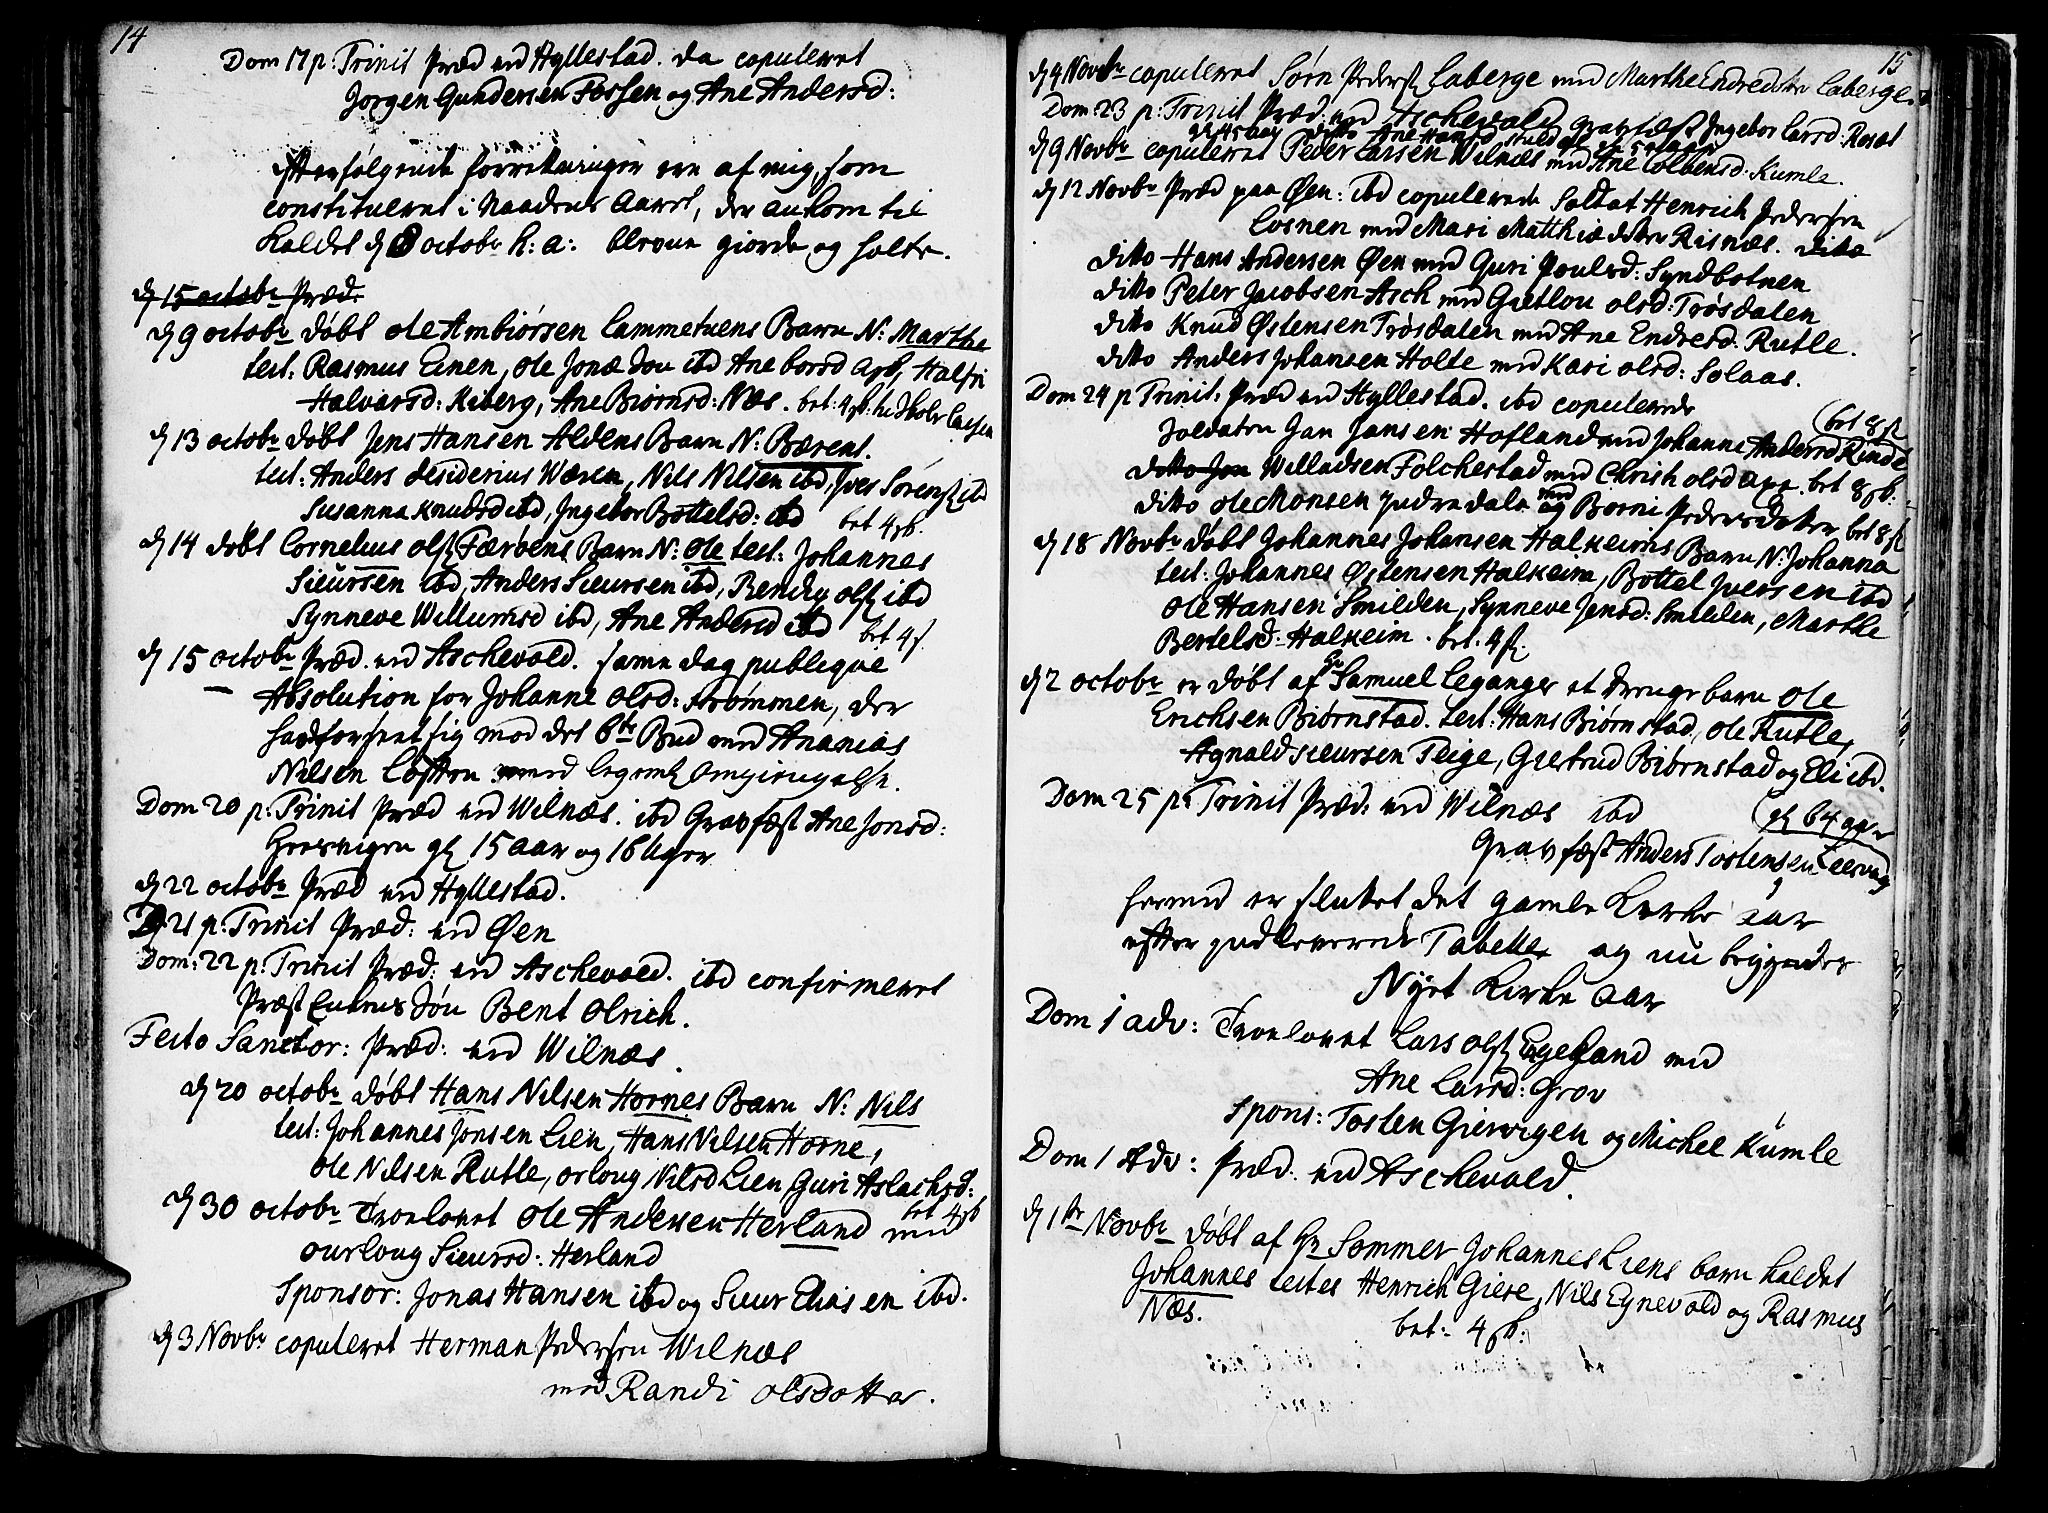 14
Dom 17 p: Trinit Præd ved Hyllestad. da copuleret
Jørgen Gundersen Fossen og Ane Andersd:
efterfølgende forretninger ere af mig, som
constitueret i Naadens Aaret, der ankom til
Kaldet d 8 octobr h: a: bleven giorde og holte.
d 15 octobr Præd.
d 9 octobr døbt Ole Ambiørsen Lammetuens Barn N: Marthe
test: Rasmus Einen, Ole Jonæ Søn ibd Ane Larsd
Halvarsd: Kiberg, Ane Biørnsd: Næs. bet: 4 sk:
d 13 octobr døbt Jens Hansen Aldens Barn N: Bærent.
test: Anders desiderius Wæren, Nils Nilsen ibd, Iver Sørens ibd
Susanna Knudsd ibd, Ingebor Bottelsd: ibd bet 4 sk.
d 14 døbt Cornelius Ols Færøens Barn N: Ole test: Johannes
Sieursen ibd, Anders Sieursen ibd, Rendig Ols ibd
Synneve Willumsd ibd, Ane Andersd ibd bet 4 s.
d 15 octobr Præd. ved Aschevold. samme dag publiqve
Absolution for Johanne Olsd: Strømmen, der
had forseet sig mod det 6te Bud med Ananias
Nilsen Løften med legeml Omgiengelse.
Dom 20 p: Trinit Præd ved Wilnæs. ibd Gravfæst Ane Jonsd:
Giervigen gl 15 aar og 16 Uger
d 22 octobr Præd ved Hyllestad.
D 21 p: Trinit Præd: ved Øen
Dom: 22 p: Trinit Præd: ved Aschevold. ibd confirmeret
Præst Enkens Søn Bent Olrich.
Festo Sanctor: Præd: ved Wilnæs.
d 20 octobr døbt Hans Nilsen Hornes Barn N: Nils
test: Johannes Jonsen Lien, Hans Nilsen Horne,
Ole Nilsen Rutle, orloug Nilsd Lien Guri Aslachsd:
bet 4 sk
d 30 octobr Troelovet Ole Andersen Herland med
ourloug Sieursd: Herland
Sponsor: Jonas Hansen ibd og Siuur Eliasen ibd.
d 3 Novbr copuleret Herman Pedersen Wilnæs
med Randi Olsdotter.
15
d 4 Novbr copuleret Sørn Peders Laberge med Marthe Endredsdtr Laberge.
Dom: 23 p: Trinit Præd: ved Aschevold gravfæst Ingebor Larsd: Rosæt
d 9 Novbr copuleret Peder Larsen Wilnæs med Ane Colbensd: Kumle.
d 12 Novbr Præd paa Øen: ibd copulerede Soldat Henrich Pedersen
Losnen med Mari Matthiædotter Risnæs. ditto
ditto Hans Andersen Øen med Guri Poulsd: Syndbotnen
ditto Peter Jacobsen Asch med Giertlou Olsd: Trøsdalen
ditto Knud Østensen Trøsdalen med Ane Endresd: Rutle.
ditto Anders Johansen Holte med Kari Olsd: Solaas.
Dom 24 p Trinit: Præd ved Hyllestad. ibd copulerede
Soldaten Jan Jansen Hofland med Johanne Andersd Rinde
bet 8 s
ditto Jon Willadsen Folchestad med Christi Olsd bet 8 sk:
ditto Ole Monsen Indredale med og Borni Pedersdotter bet 8 s
d 18 Novbr døbt Johannes Johansen Halkeims Barn N: Johanna
test: Johannes Østensen Halkeim, Bottel Iversen ibd
Ole Hansen Smilden, Synneve Jensd: Smilden, Marthe
Bertelsd: Halkeim. bet: 4 s.
d 2 octobr er døbt af Hr Samuel Leganger et drenge barn Ole
Erichsen Biørnstad. test: Hans Biørnstad, Ole Rutle,
Agnald Sieursen Teige, Giertrud Biørnstad og Eli ibd.
Dom 25 p: Trinit Præd: ved Wilnæs ibd
gl 64 aar
Gravfæst Anders Tostensen Leervog
hermed er sluttet det gamle Kirke aar
efter indleverede Tabelle og nu begyndes
Nyet Kirke aar
Dom 1 adv: Troelovet Lars Ols Egeland med
Ane Larsd: Grov
Spons: Tosten Giervigen og Michel Kumle
Dom 1 Adv: Præd: ved Aschevold.
d 1te Novbr døbt af Hr Sommer Johannes Liens barn kaldet
Johannes testes Henrich Giere, Nils Eynevold og Rasmus
Næs. bet: 4 sk: